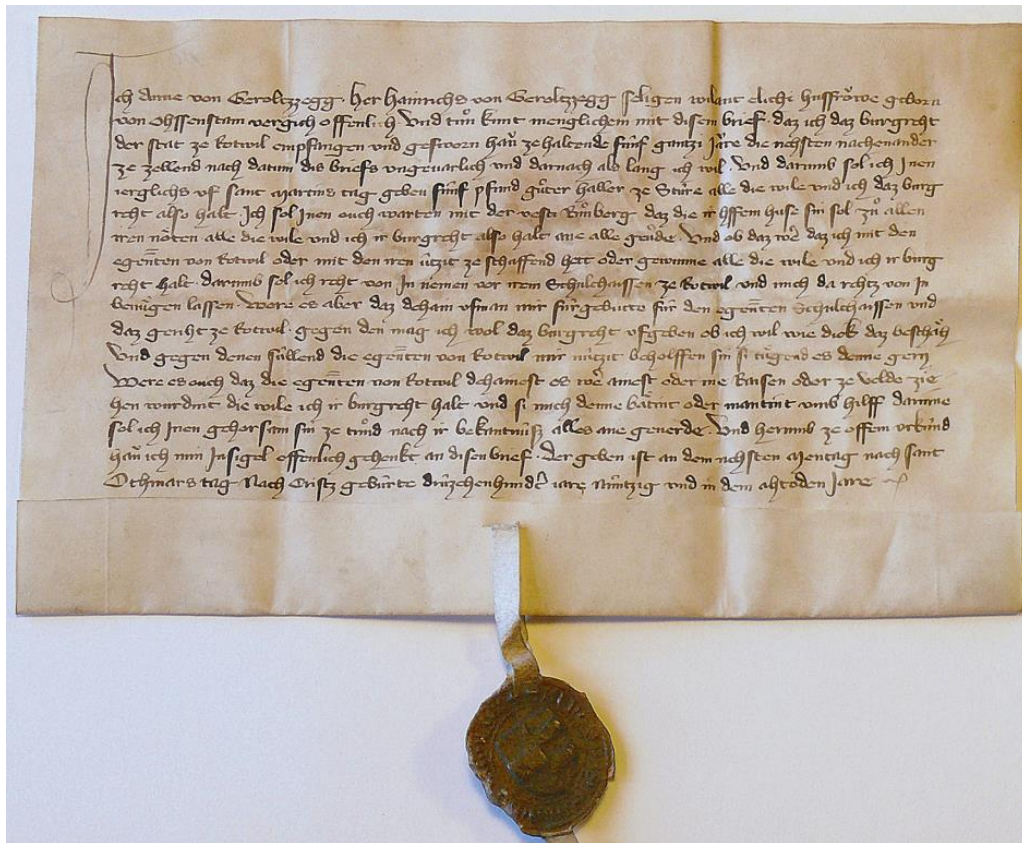 Ich Anne von Geroltzzegg Her Hainrichs von Geroltzzegg seligen wilant elichi husfröwe geborn
von Ohssenstain vergich offenlich Und tůn kunt menglichem mit disem brief daz ich daz burgreht
der stat ze Rotwil empfangen und gesworn han ze haltende fúnf gantzi Jare die nehsten nachenander
ze zellend nach datum dis briefs ungevarlich und darnach als lang ich wil Und darumb sol ich Inen
ierglichs uf sant Martins tag geben fúnf pfund gůter haller ze Stúre alle die wile und ich daz burg
reht also halt Ich sol Inen ouch warten mit der vesti daz die ir offen huse sin sol zů allen
iren nöten alle die wile und ich ir burgreht also halt ane alle geuerde Und ob daz wer daz ich mit den
egenten von Rotwil oder mit den iren útzit ze schaffend hett oder gewunne alle die wile und ich ir burg
reht halt darumb sol ich reht von In nemen vor irem Schulthaissen ze Rotwil und mich da rehtz von In
benůgen lassen Were es aber daz dehain usman mir fúrgebutte fúr den egenten Schulthaissen und
daz geriht ze Rotwil gegen den mag ich wol daz burgreht ufgeben ob ich wil wie dick daz beschäh
Und gegen denen súllend die egenten von Rotwil mir nútzit beholffen sin si tůgend es denne gern
Were es ouch daz die egenten von Rotwil dehainest es wer ainest oder me Raisen oder ze velde zie
hen wurdint die wile ich ir burgreht halt und si mich denne bätint oder mantint umb hilff darinne
sol ich Inen gehorsam sin ze tůnd nach ir bekantnúß alles ane geuerde Und herumb ze offem urkúnd
han ich min Insigel offenlich gehenkt an disen brief Der geben ist an dem nehsten Mentag nach sant
Othmars tag Nach Cristz gebúrte drúzehenhundert iare Núntzig und in dem ahtoden Jare